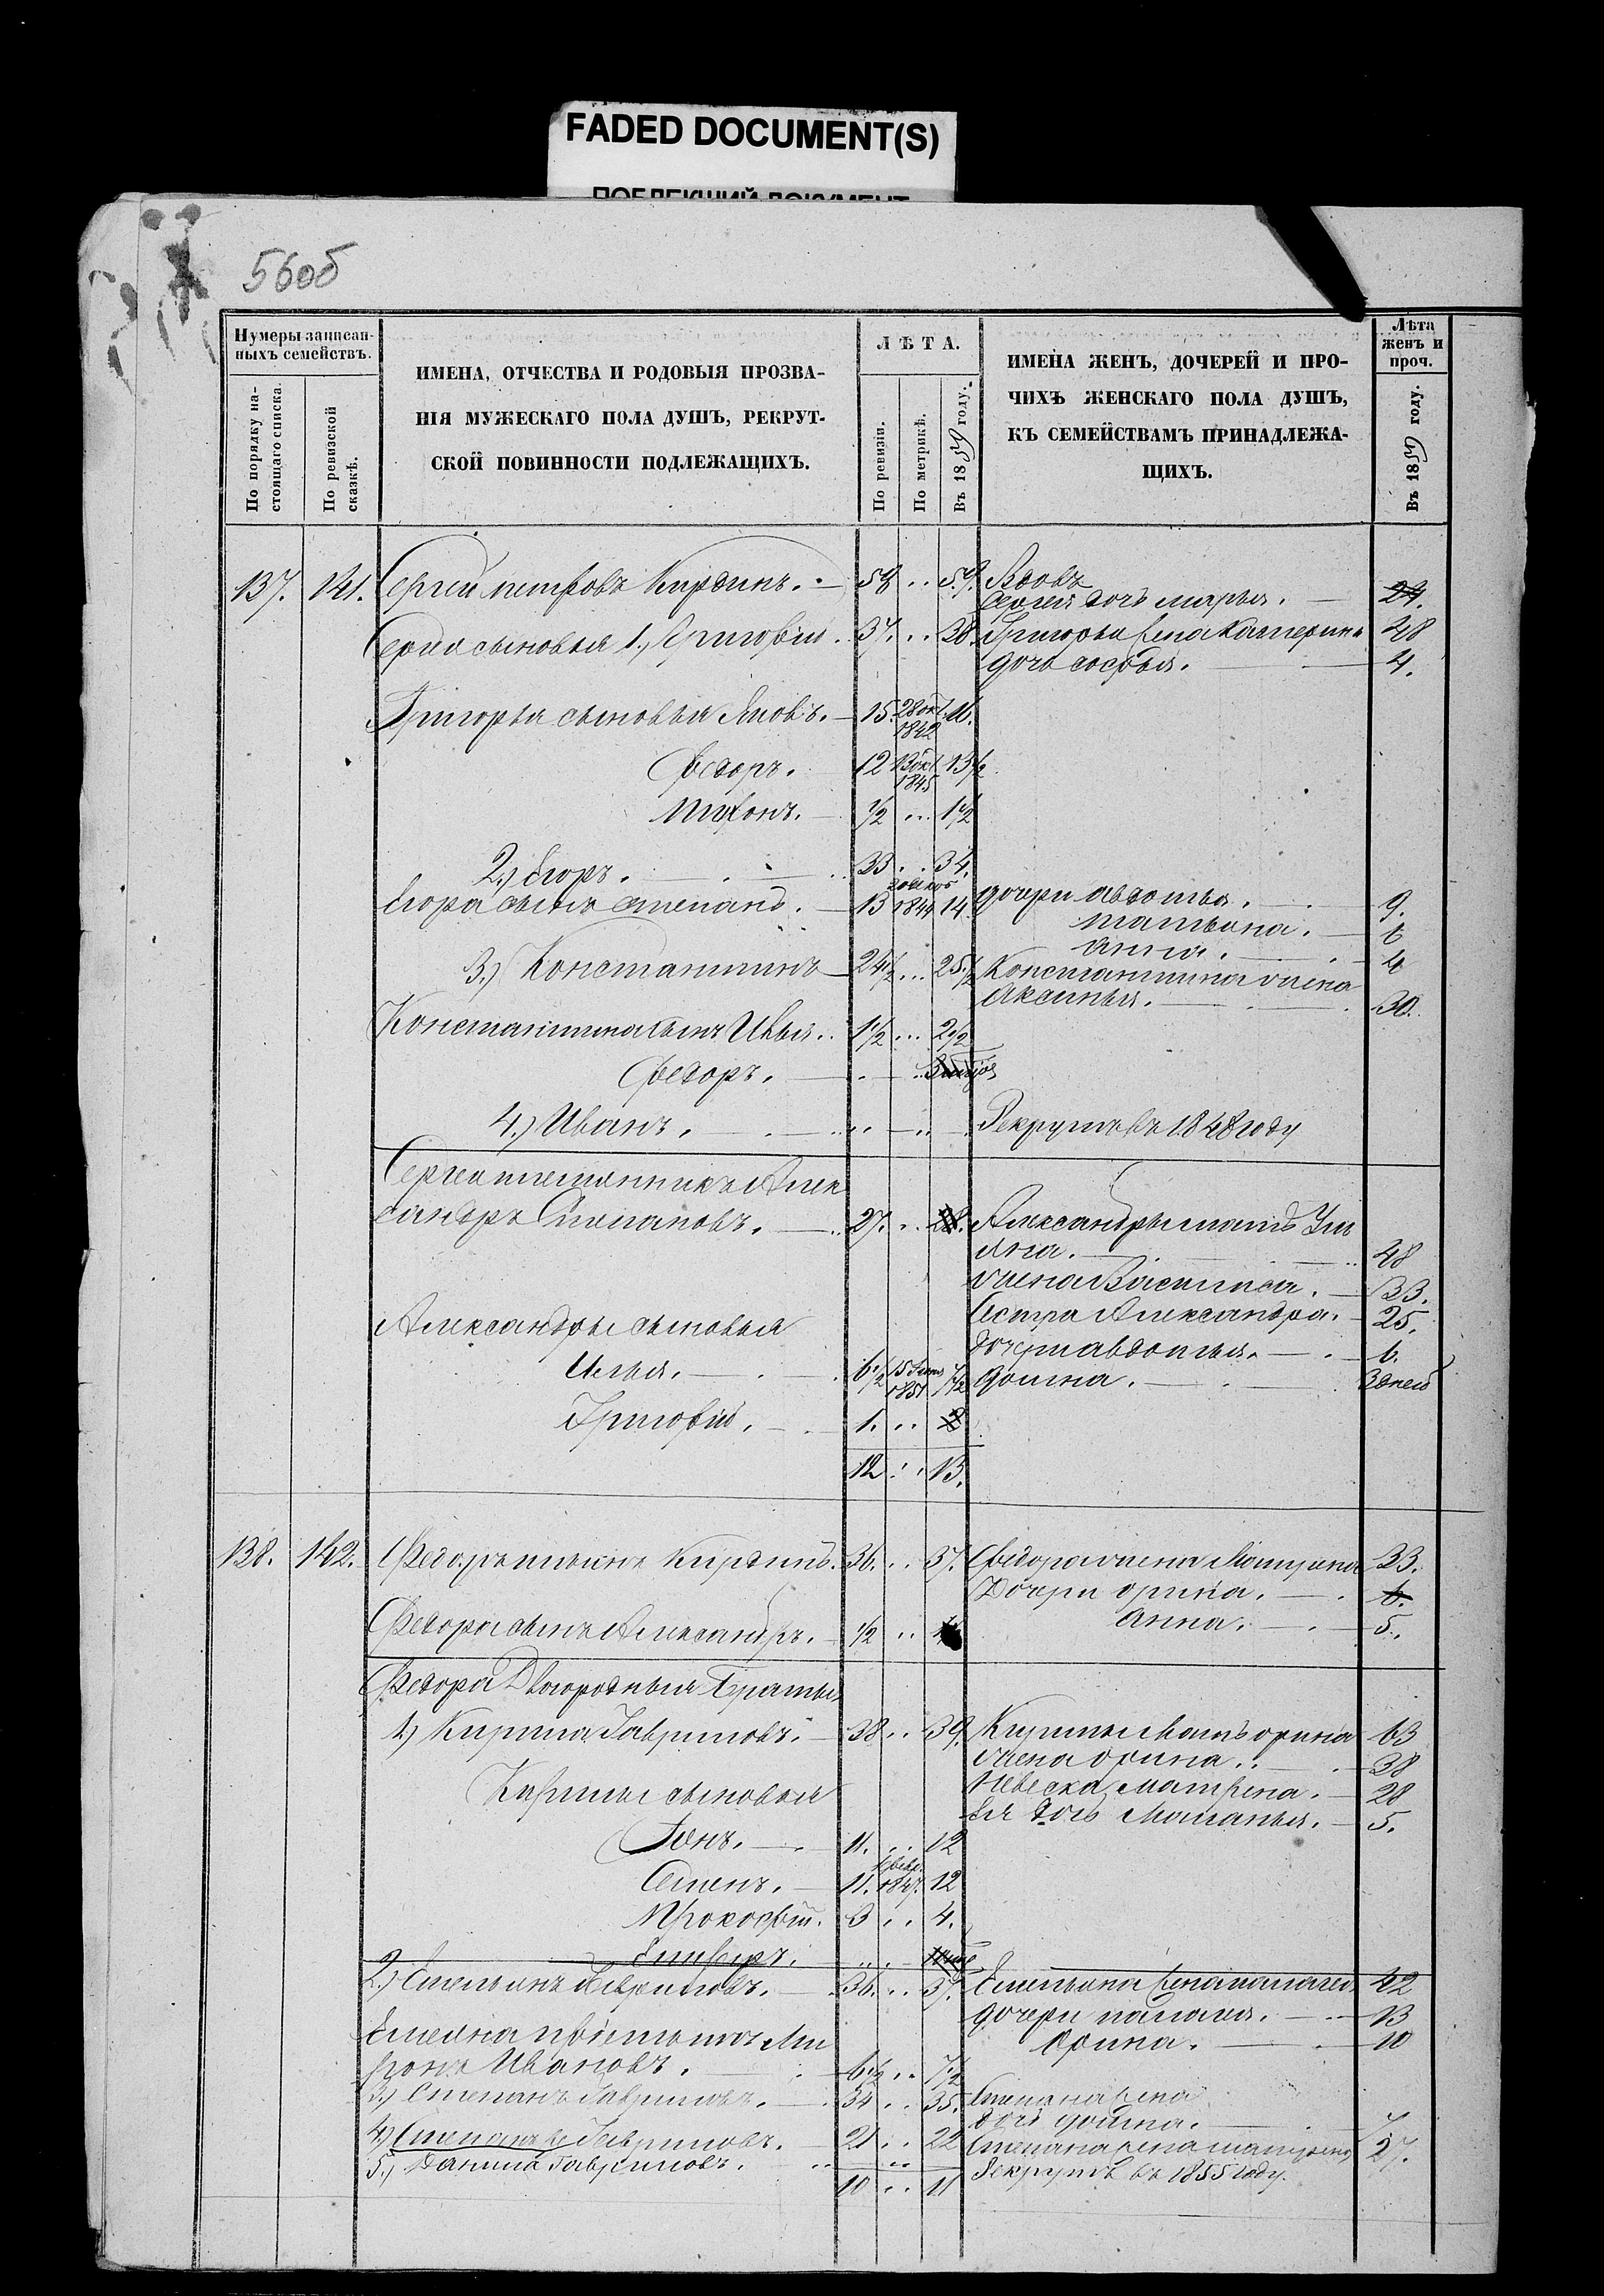 FADED DOCUMENT(S)
ПОБЛЕКШИЙ ДОКУМЕНТ
56об
Нумеры записан-
ныхъ семействъ.
По порядку на-
стоящаго списка.
По ревизской
сказкѣ.
ИМЕНА, ОТЧЕСТВА И РОДОВЫЯ ПРОЗВА-
НІЯ МУЖЕСКАГО ПОЛА ДУШЪ, РЕКРУТ-
СКОЙ ПОВИННОСТИ ПОДЛЕЖАЩИХЪ.
ЛѢТА.
По ревизіи.
По метрикѣ.
Въ 1859 году.
ИМЕНА ЖЕНЪ, ДОЧЕРЕЙ И ПРО-
ЧИХЪ ЖЕНСКАГО ПОЛА ДУШЪ,
КЪ СЕМЕЙСТВАМЪ ПРИНАДЛЕЖА-
ЩИХЪ.
Лѣта
женъ и
проч.
Въ 1859 году.
137. 141. Сергей петровъ Кирдинъ. 58 59. Вдовъ
Сергея дочь марья. 24.
Сергея сыновья 1.) Григорій 37. 38. Григорья жена Катерина 48
дочь софья. 4.
Григорья сыновья Яковъ. 15. 28 окт. 1842 16.
Федоръ. 12 13 окт. 1845 13 1/2
Тихонъ. 1/2 1 1/2
2.) Егоръ. 33 34.
Егора сынъ степанъ. 13 1844 14 дочери авдотья. 9.
татьяна. 6
анна. 4
3.) Константинъ 24 1/2 25 1/2 Константина жена
Аксинья. 30.
Константина сынъ Илья 1 1/2 2 1/2
Федоръ.
4.) Иванъ. Рекрутъ въ 1848 году
Сергея племянникъ Алек
сандръ Степановъ. 27. 28. Александры мать Уль
яна. 48
жена Василиса. 33.
Сестра Александра. 25.
Александры сыновья дочери авдотья. 6.
Илья. 6 1/2 1851 7 1/2 домна. 3 дней
Григорій. 1. 2
12 13.
138. 142. Федоръ Кирдинъ. 36. 37. Федора жена Матрена 33.
Дочери орина. 6.
Федора сынъ Александръ. 1/2 анна. 5.
Федора Двоюродныя Братья
1.) Кирила Гавриловъ. 38 39. Кирилы Мать орина 63
жена орина. 38
Кирилы сыновья Невеска матрена. 28
Ея дочь Маланья. 5.
Іонъ. 11. 12
Семенъ. 11. 1847. 12
Прокофій. 3 4.
2.) Емельянъ Гавриловъ. 36. 37. Емельяна жена 42
дочери 13
Емеляна пріемышъ Ми
ронъ Ивановъ. 6 1/2 7 1/2 Орина. 10
3.) Степанъ Гавриловъ. 34 35. Степана жена
дочь домна. 7
4.) Степанъ Гавриловъ. 21 22 Степана жена матрена 27.
5.) Данила Гавриловъ. Рекрутъ въ 1855 году.
10 11